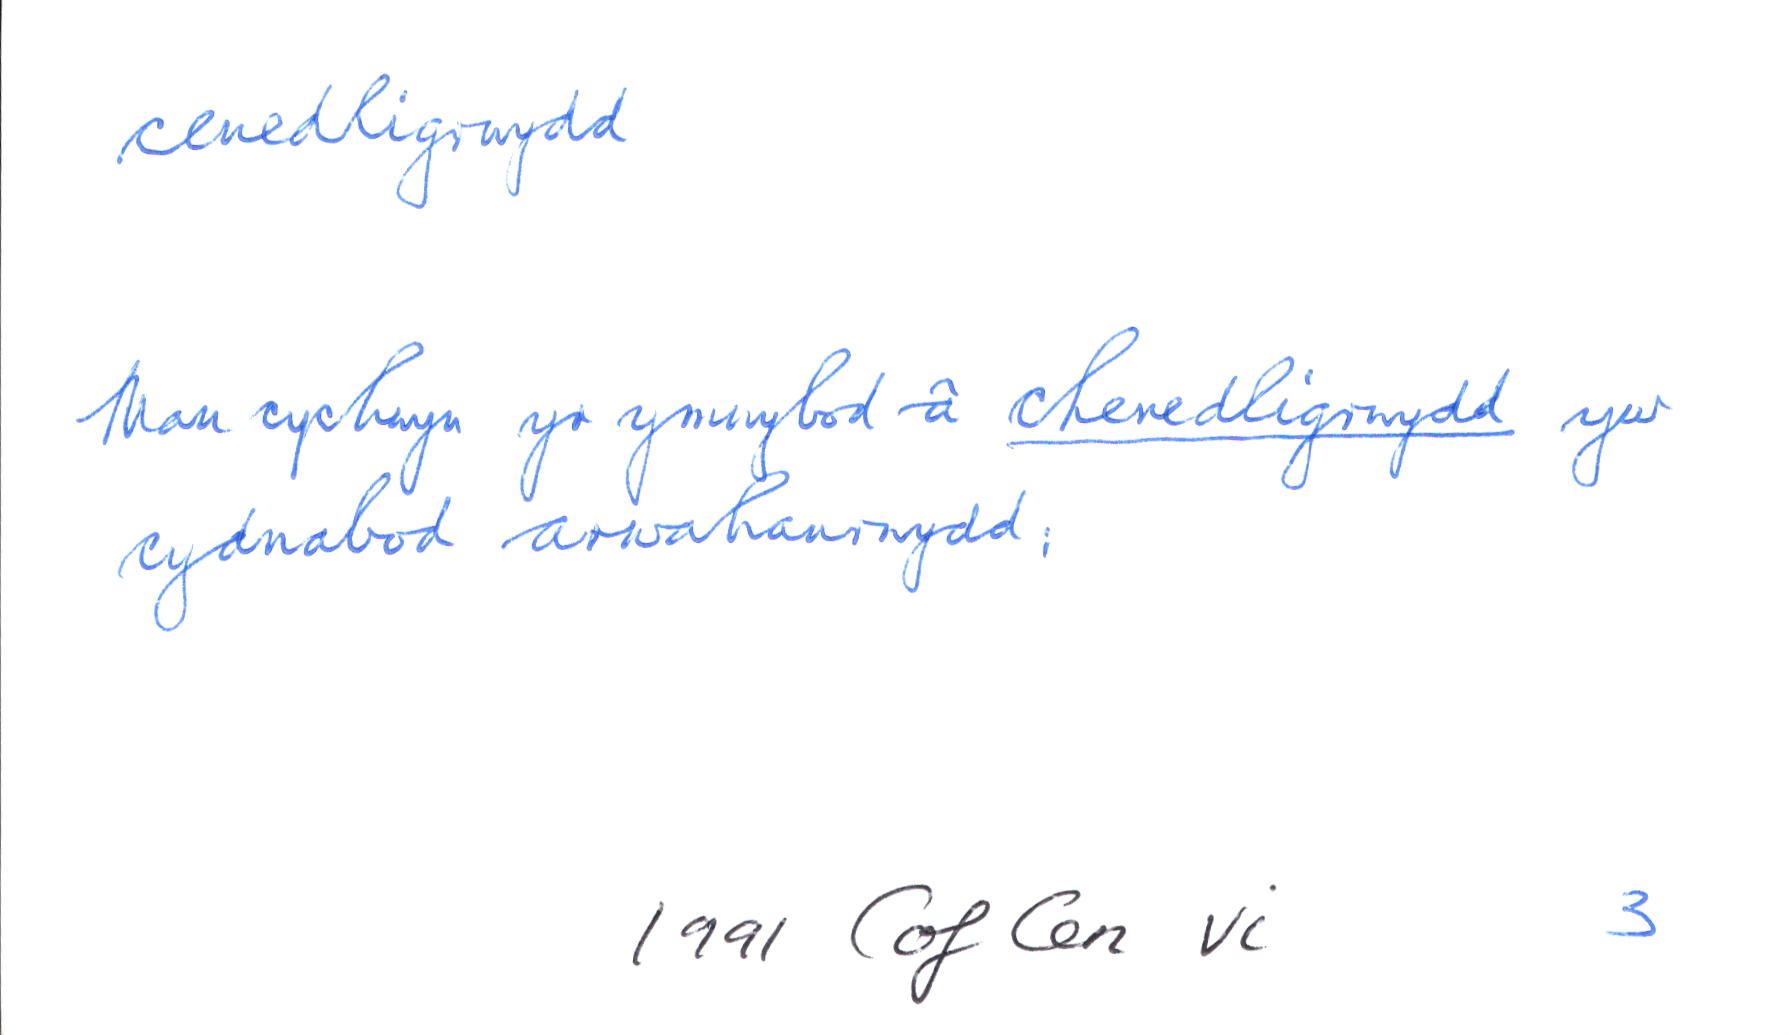 cenedligrwydd
Man cychwyn yr ymwybod â chenedligrwydd yw
cydnabod arwahanrwydd;
1991 Cof Cen vi 3